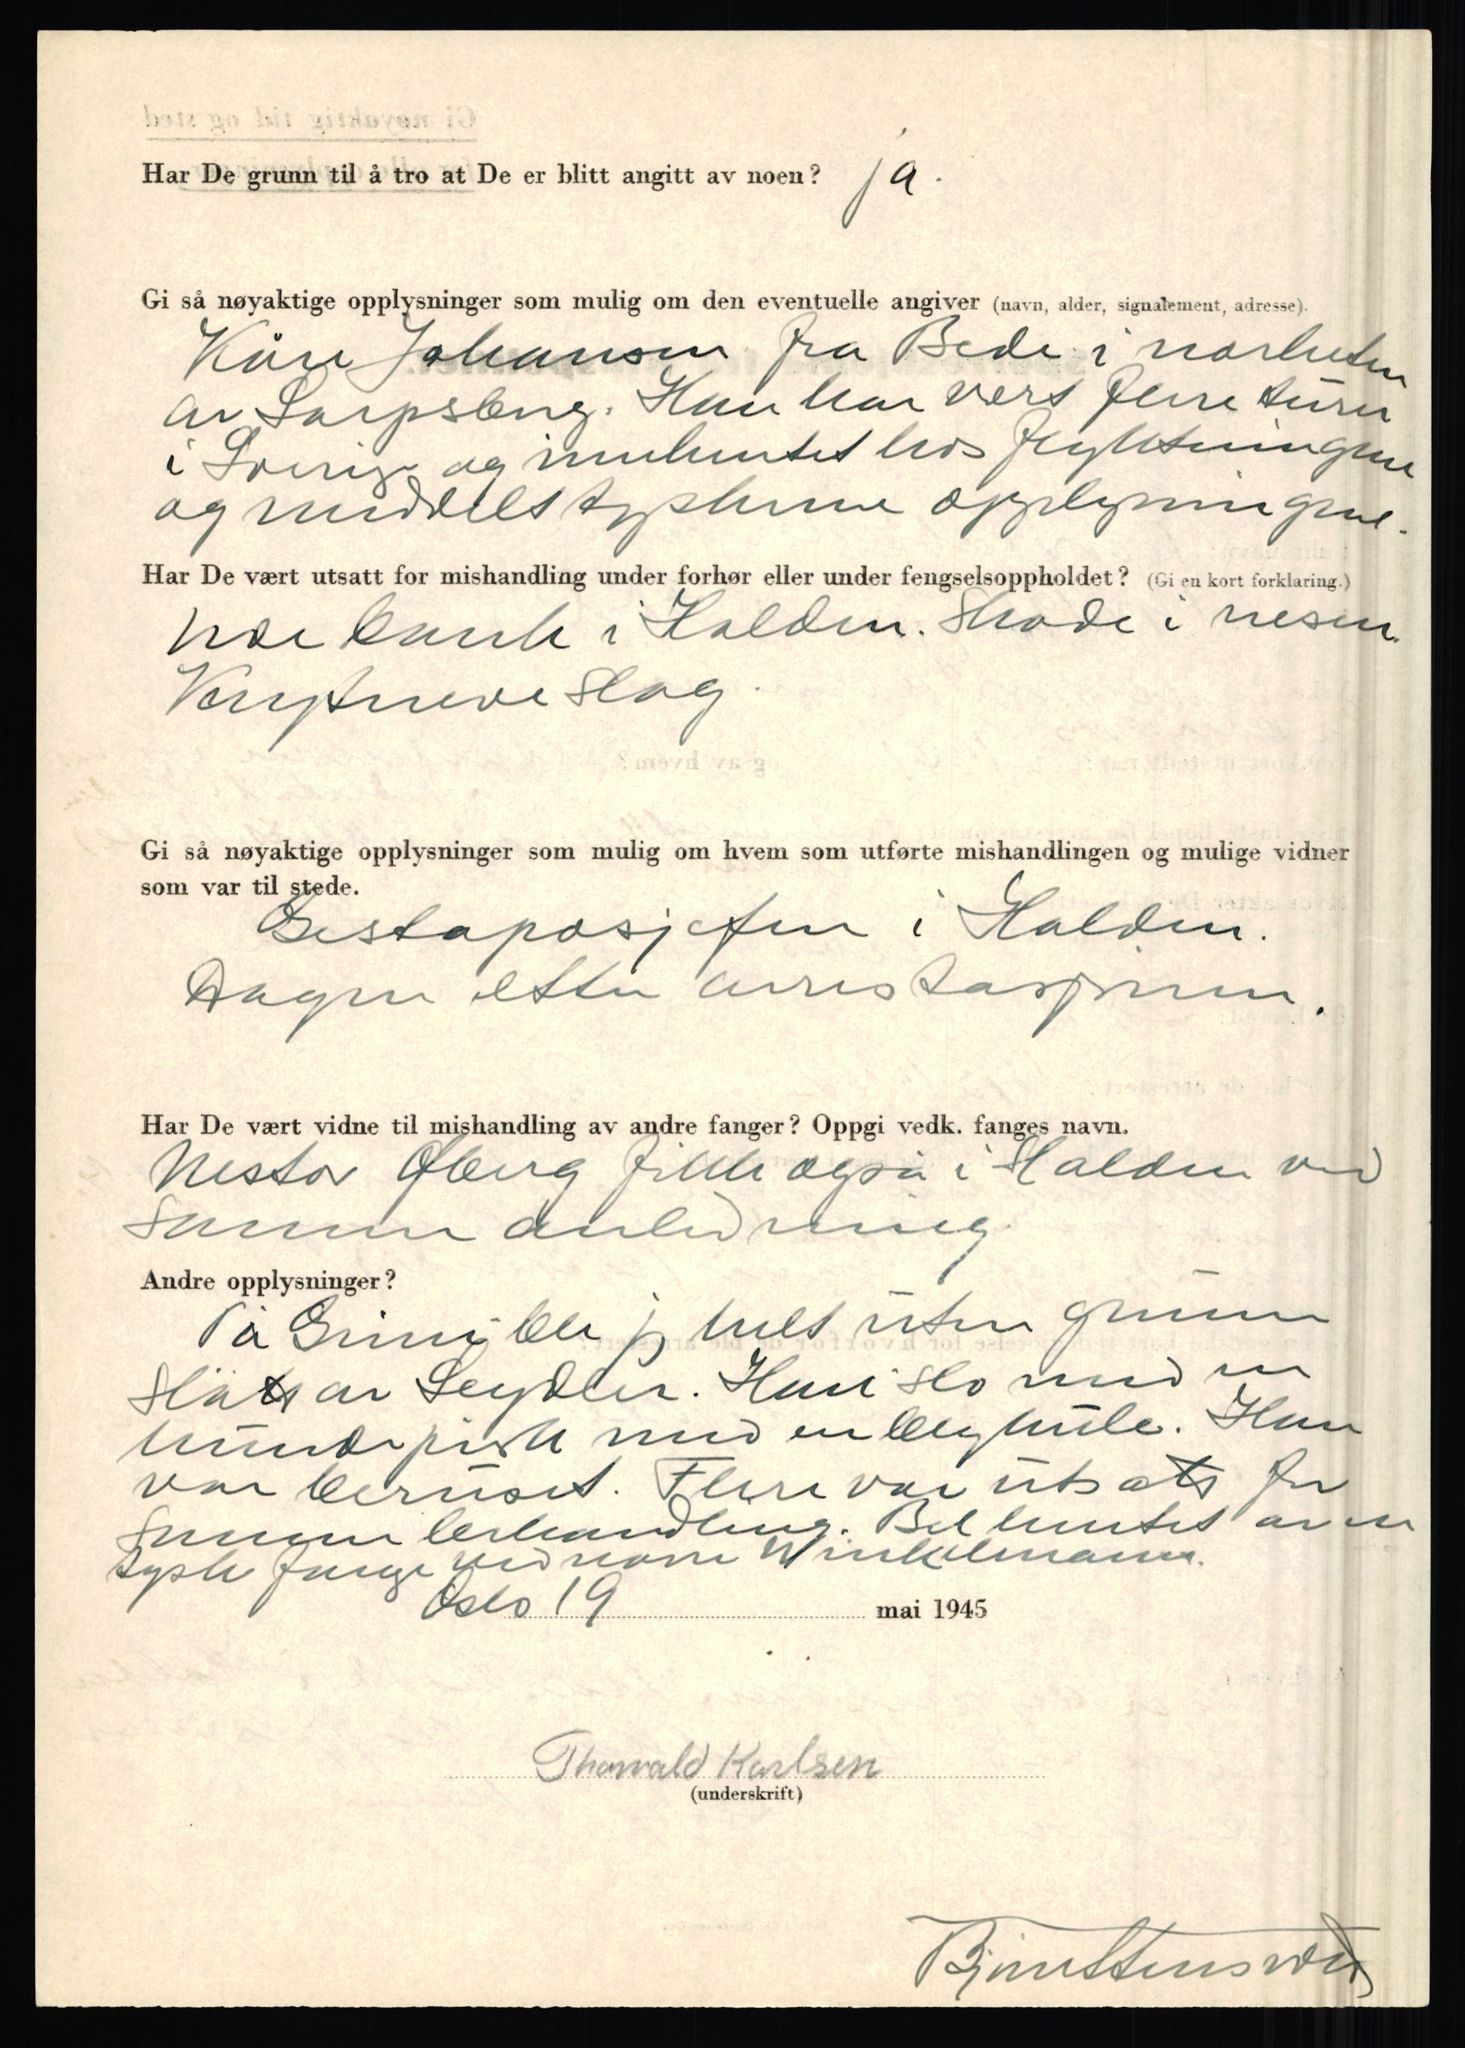 Har De grunn til å tro at De er blitt angitt av noen? ja.
Gi så nøyaktige opplysninger som mulig om den eventuelle angiver (navn, alder, signalement, adresse).
Kåre Johansen fra Bede i nærheten
av Sarpsborg. Han har vært flere turer
i Sverige og innhentet hos flyktningene
og meddelt tyskerne opplysningene.
Har De vært utsatt for mishandling under forhør eller under fengselsoppholdet? (Gi en kort forklaring.)
Noe bank i Halden. Skade i nesen.
Knyttneveslag.
Gi så nøyaktige opplysninger som mulig om hvem som utførte mishandlingen og mulige vidner
som var til stede.
Gestaposjefen i Halden.
Dagen etter arrestasjonen.
Har De vært vidne til mishandling av andre fanger? Oppgi vedk. fanges navn.
Nestor Øberg fikk også i Halden ved
samme anledning.
Andre opplysninger?
På Grini ble jeg helt uten grunn
slått av Seydler. Han slo med en
hundepisk med en blykule. Han
var beruset. Flere var utsatt for
samme behandling. Ble hentet av en
tysk fange ved navn Winkelmann.
Oslo 19 mai 1945
Thorvald Karlsen
(underskrift)